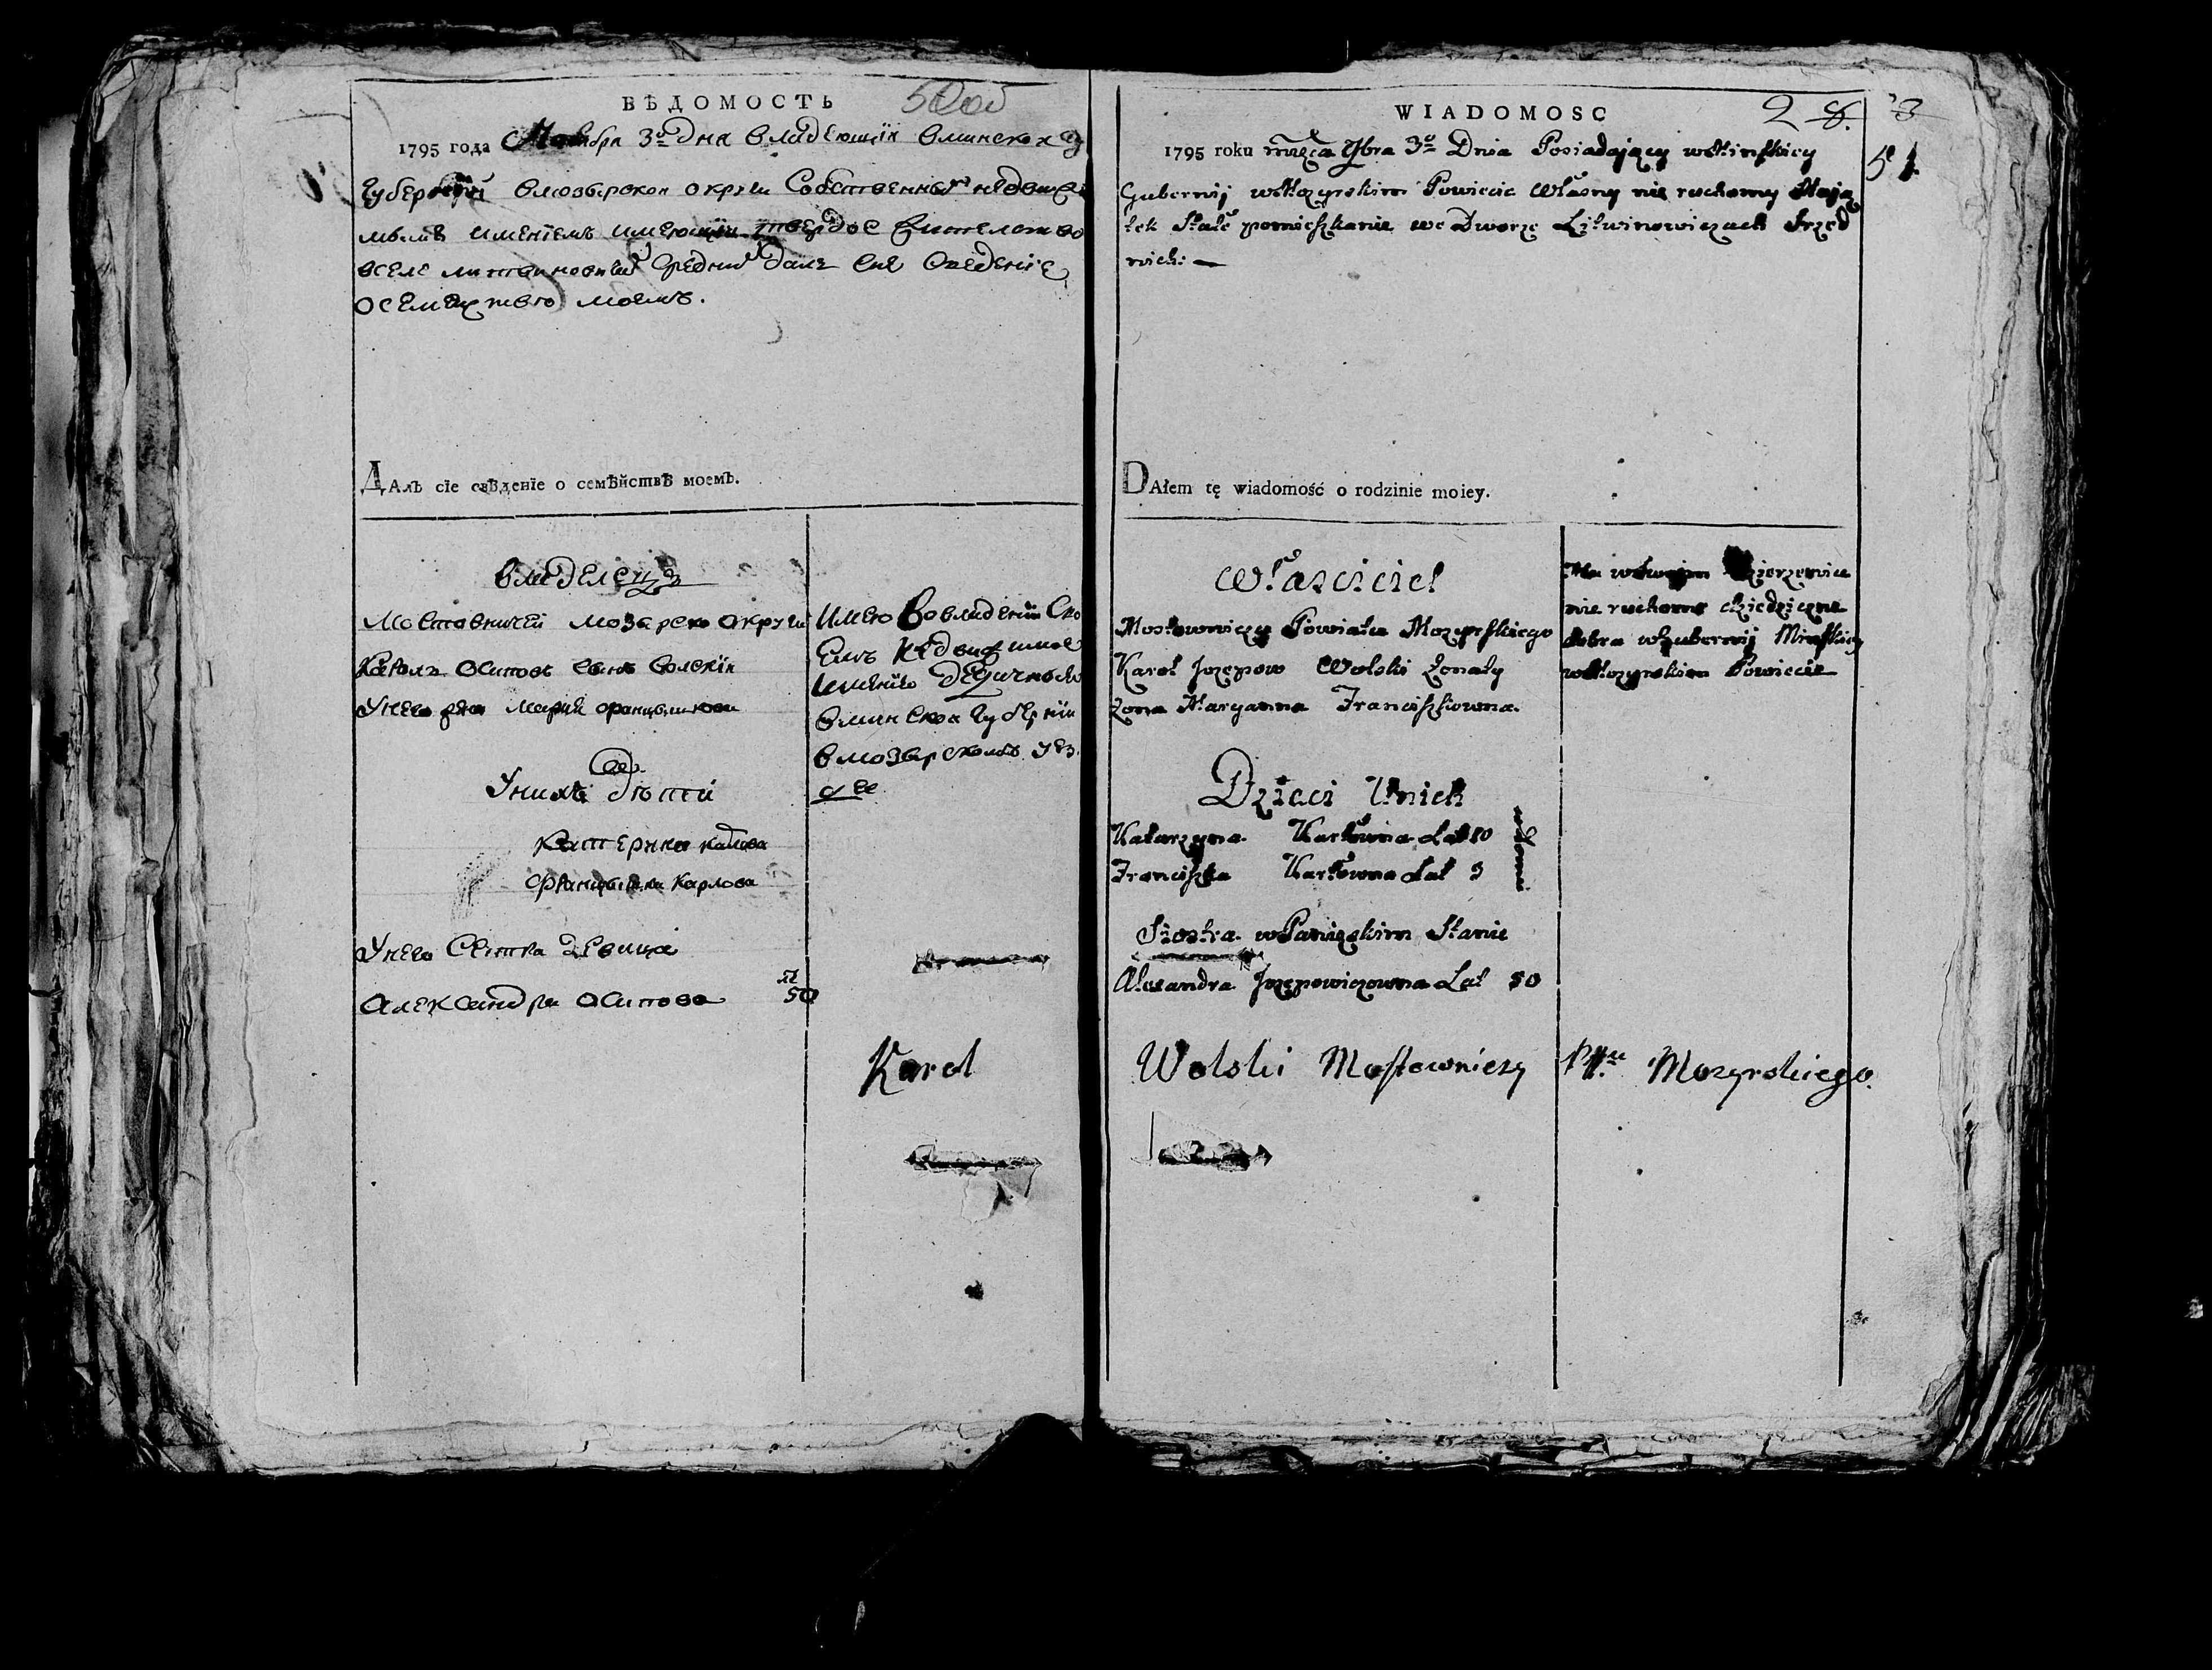 ВѢДОМОСТЬ
1795 года Ноября 3го дня владеющїи вминской
Губернїи вмозырскои округи Собственным недвижи
мымъ имениемъ имеющии твердое жителство
вселе литвиновичах Средних далъ сие сведение
осемействе моемъ.
Далъ сїе свѣденїе о семѣйствѣ моемъ.
владелецъ
Мостовничей мозырско округи
Кароль Осиповъ сынъ волскїи
Унево жена Мария францышкова
Унихъ дѣтей
Катерина карлова
францышка карлова
Унево Сестра девица
Александра Осипова 50
Имею вовладении Сво
емъ недвижимое
имение дедичное
вминской губернии
вмозырскомъ уез
де
Karol
WIADOMOSC
28. 3
51.
1795 roku mca 9bra 3o Dnia Posiadaiący wMinskiey
Gubernij wMozyrskim Powiecie Własny nie ruchomy Mają
tek Stałe pomieszkanie we Dworze Litwinowiczach Srzed
nich:
DAłem tę wiadomość o rodzinie moiey.
Własciciel
Mostowniczy Powiatu Mozyrskiego
Karol Jozepow Wolski Żonaty
Żona Maryanna Franciszkowna.
Dzieci Unich
Katarzyna Karłowna Lat 10
Franciszka Karłowna Lat 3
w domu
Siostra w Panieńskim Stanie
Alexandra Jozepowiczowna Lat 50
Ma w swojm Dzierzeniu
nie ruchome dziedziczne
dobra wGubernij Minskiey
wMozyrskim Powiecie
Wolski Mostowniczy Pttu Mozyrskiego.